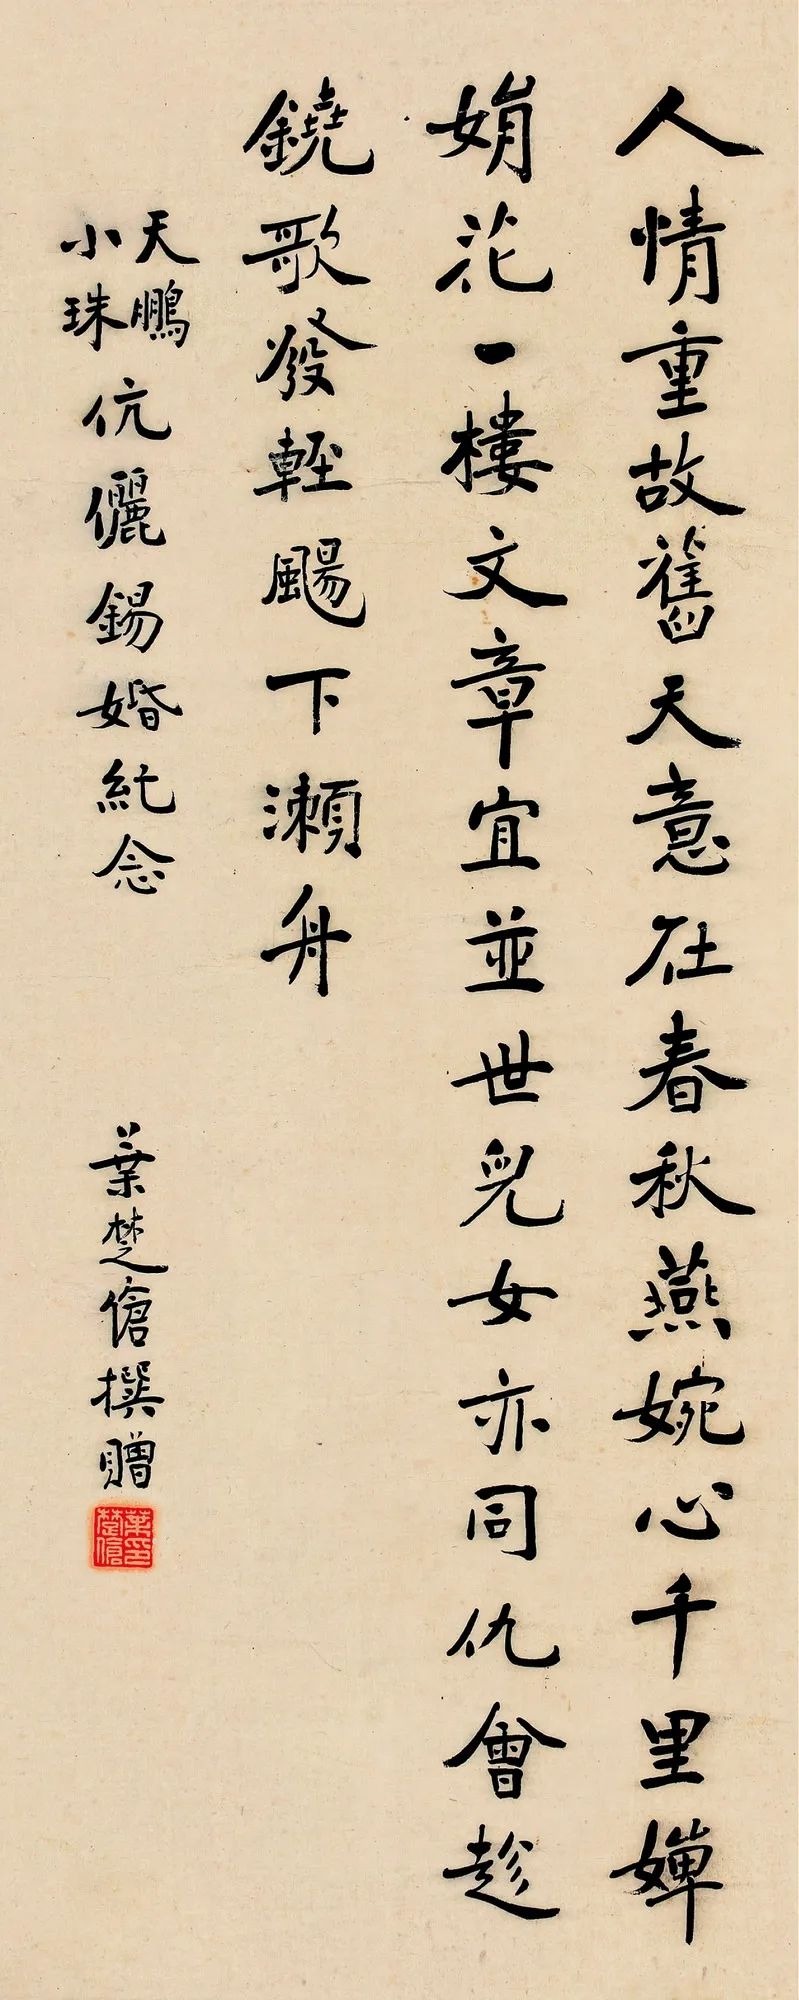 人情重故舊天意在春秋燕婉心千里嬋
娟花一樓文章宜並世兒女亦同仇會趁
鐃歌發輕颺下瀨舟
天鵬
小珠
伉儷錫婚紀念
葉楚傖撰贈
葉楚傖印